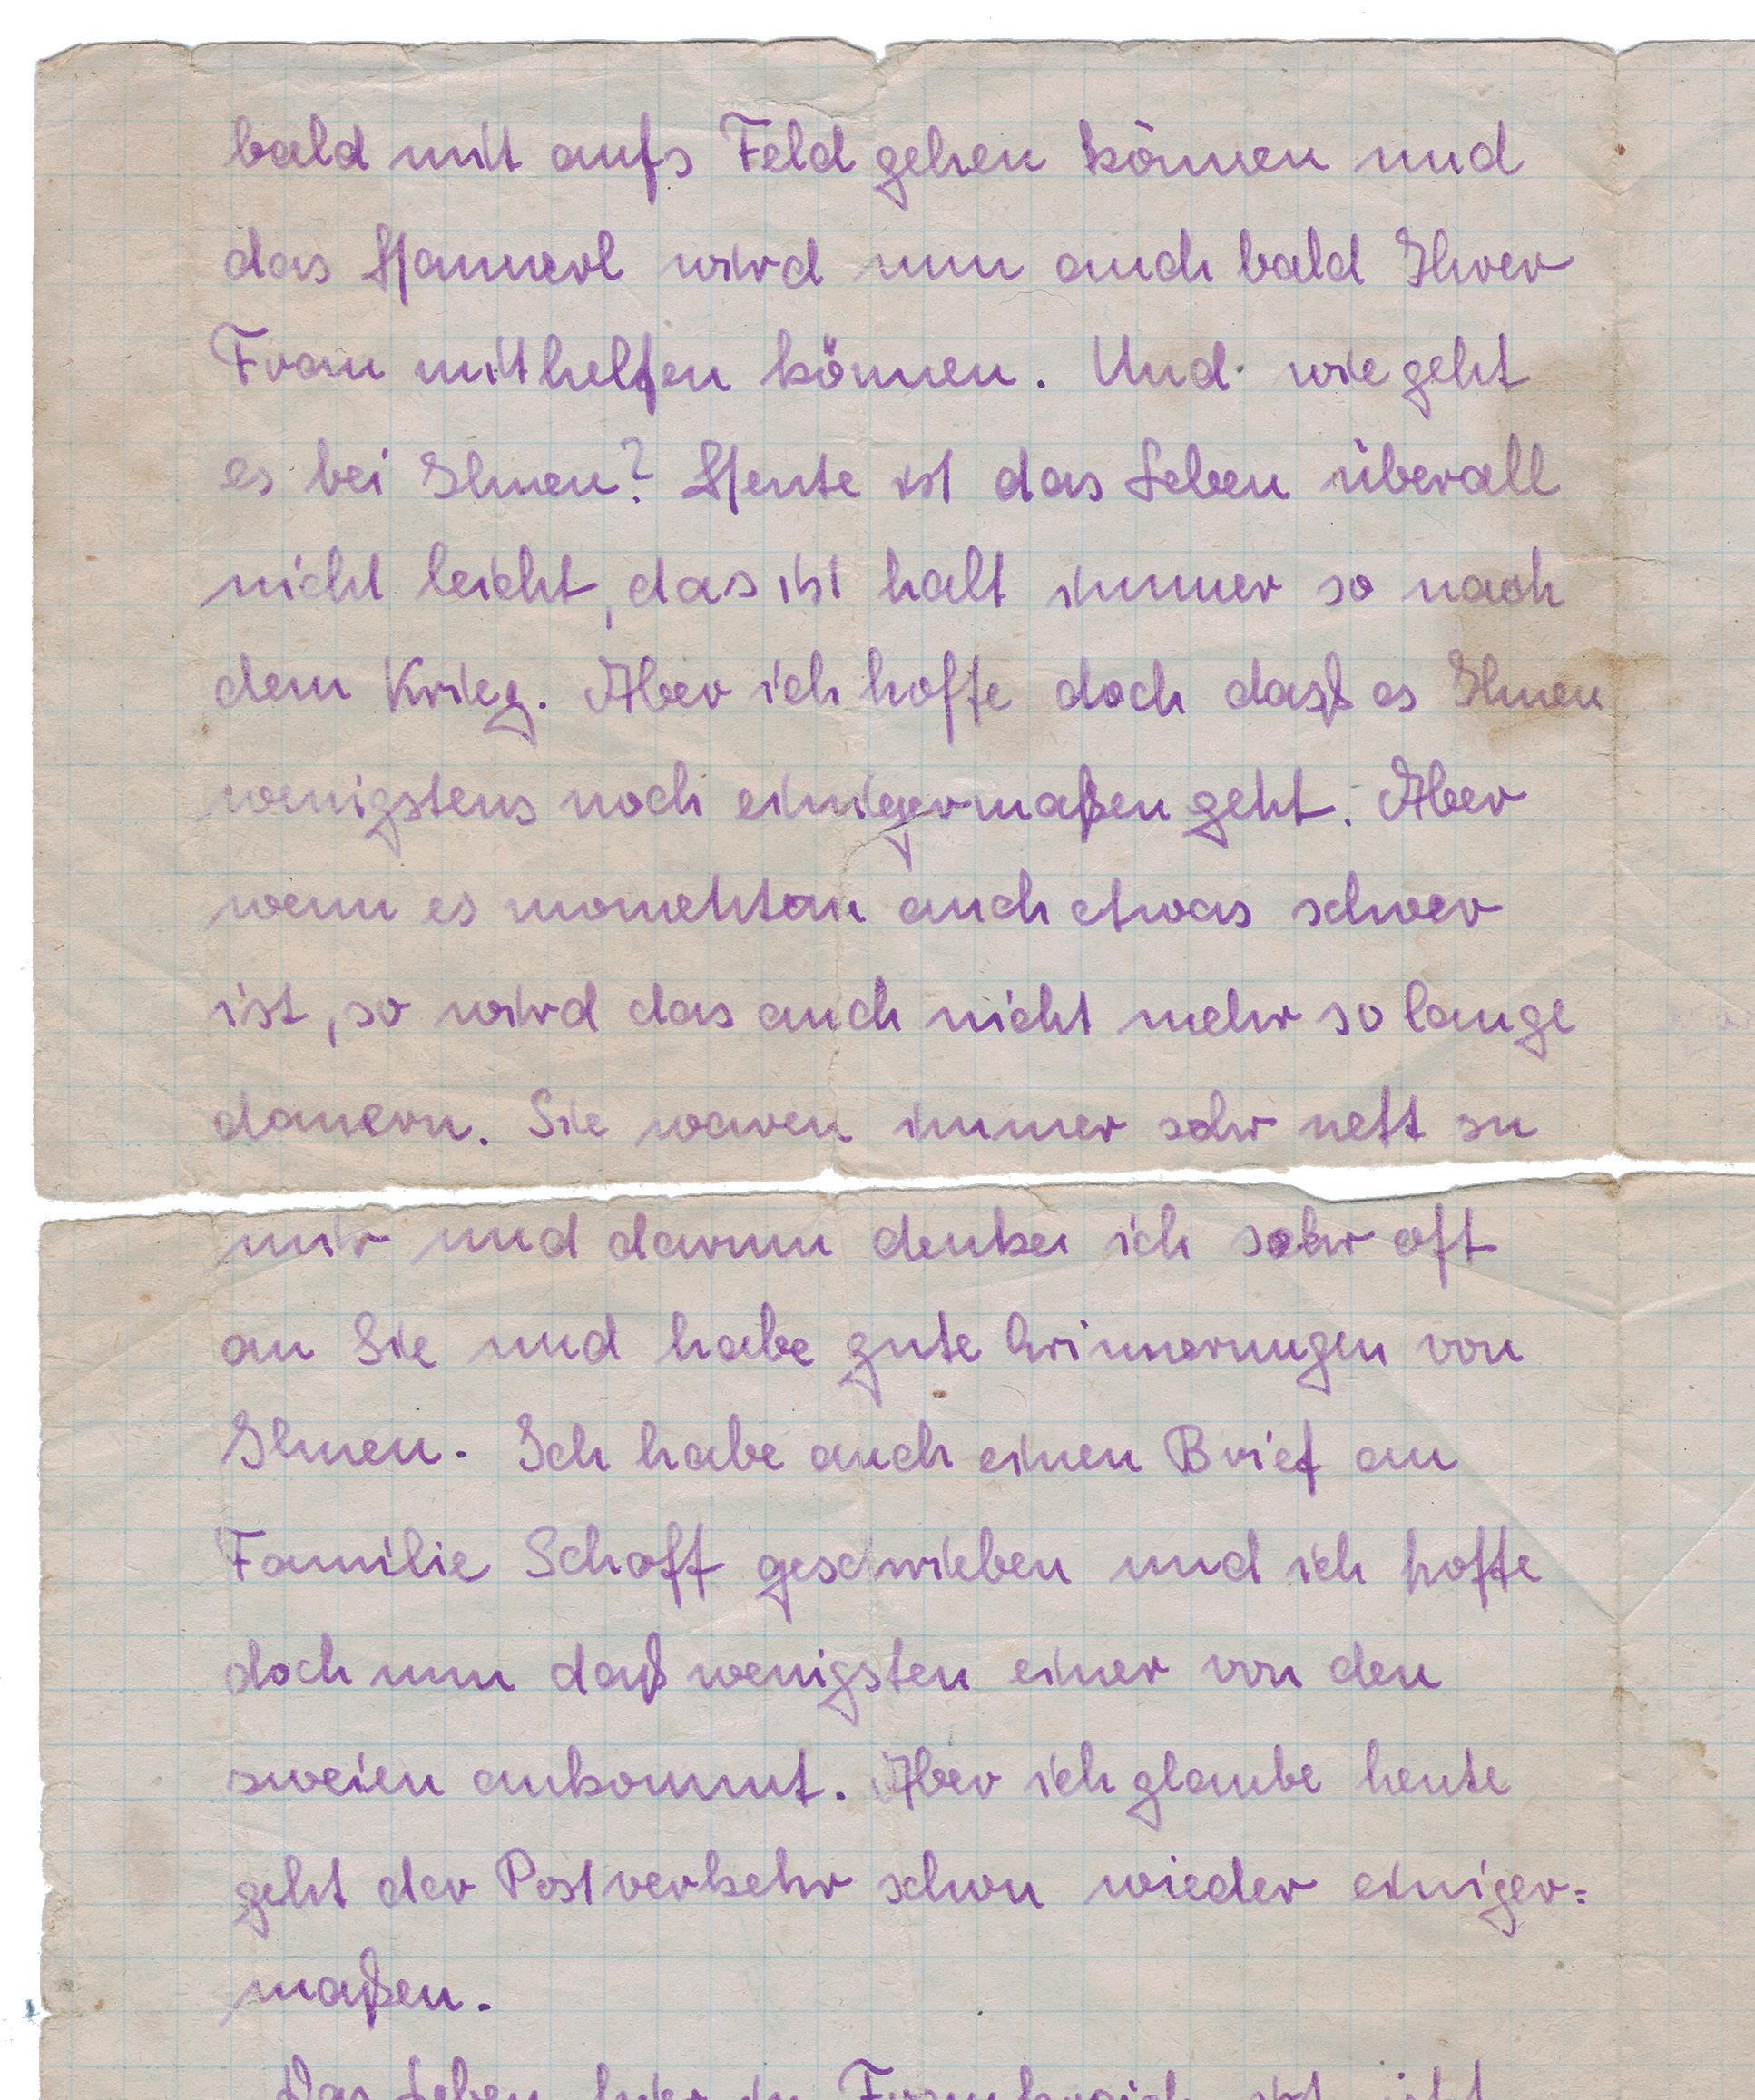 bald mit aufs Feld gehen können und
das Hannerl wird nun auch bald Ihrer
Frau mithelfen können. Und wie geht
es bei Ihnen? Heute ist das Leben überall
nicht leicht, das ist halt immer so nach
dem Krieg. Aber ich hoffe doch dasß es Ihnen
wenigstens noch einigermaßen geht. Aber
wenn es momentan auch etwas schwer
ist, so wird das auch nicht mehr so lange
dauern. Sie waren immer sehr nett zu
mir und darum denke ich sehr oft
an Sie und habe gute Erinnerungen von
Ihnen. Ich habe auch einen Brief an
Familie Schaff geschrieben und ich hoffe
doch nun daß wenigsten einer von den
zweien ankommt. Aber ich glaube heute
geht der Postverkehr schon wieder einiger=
maßen.
Das Leben hier in Frankreich ist jetzt